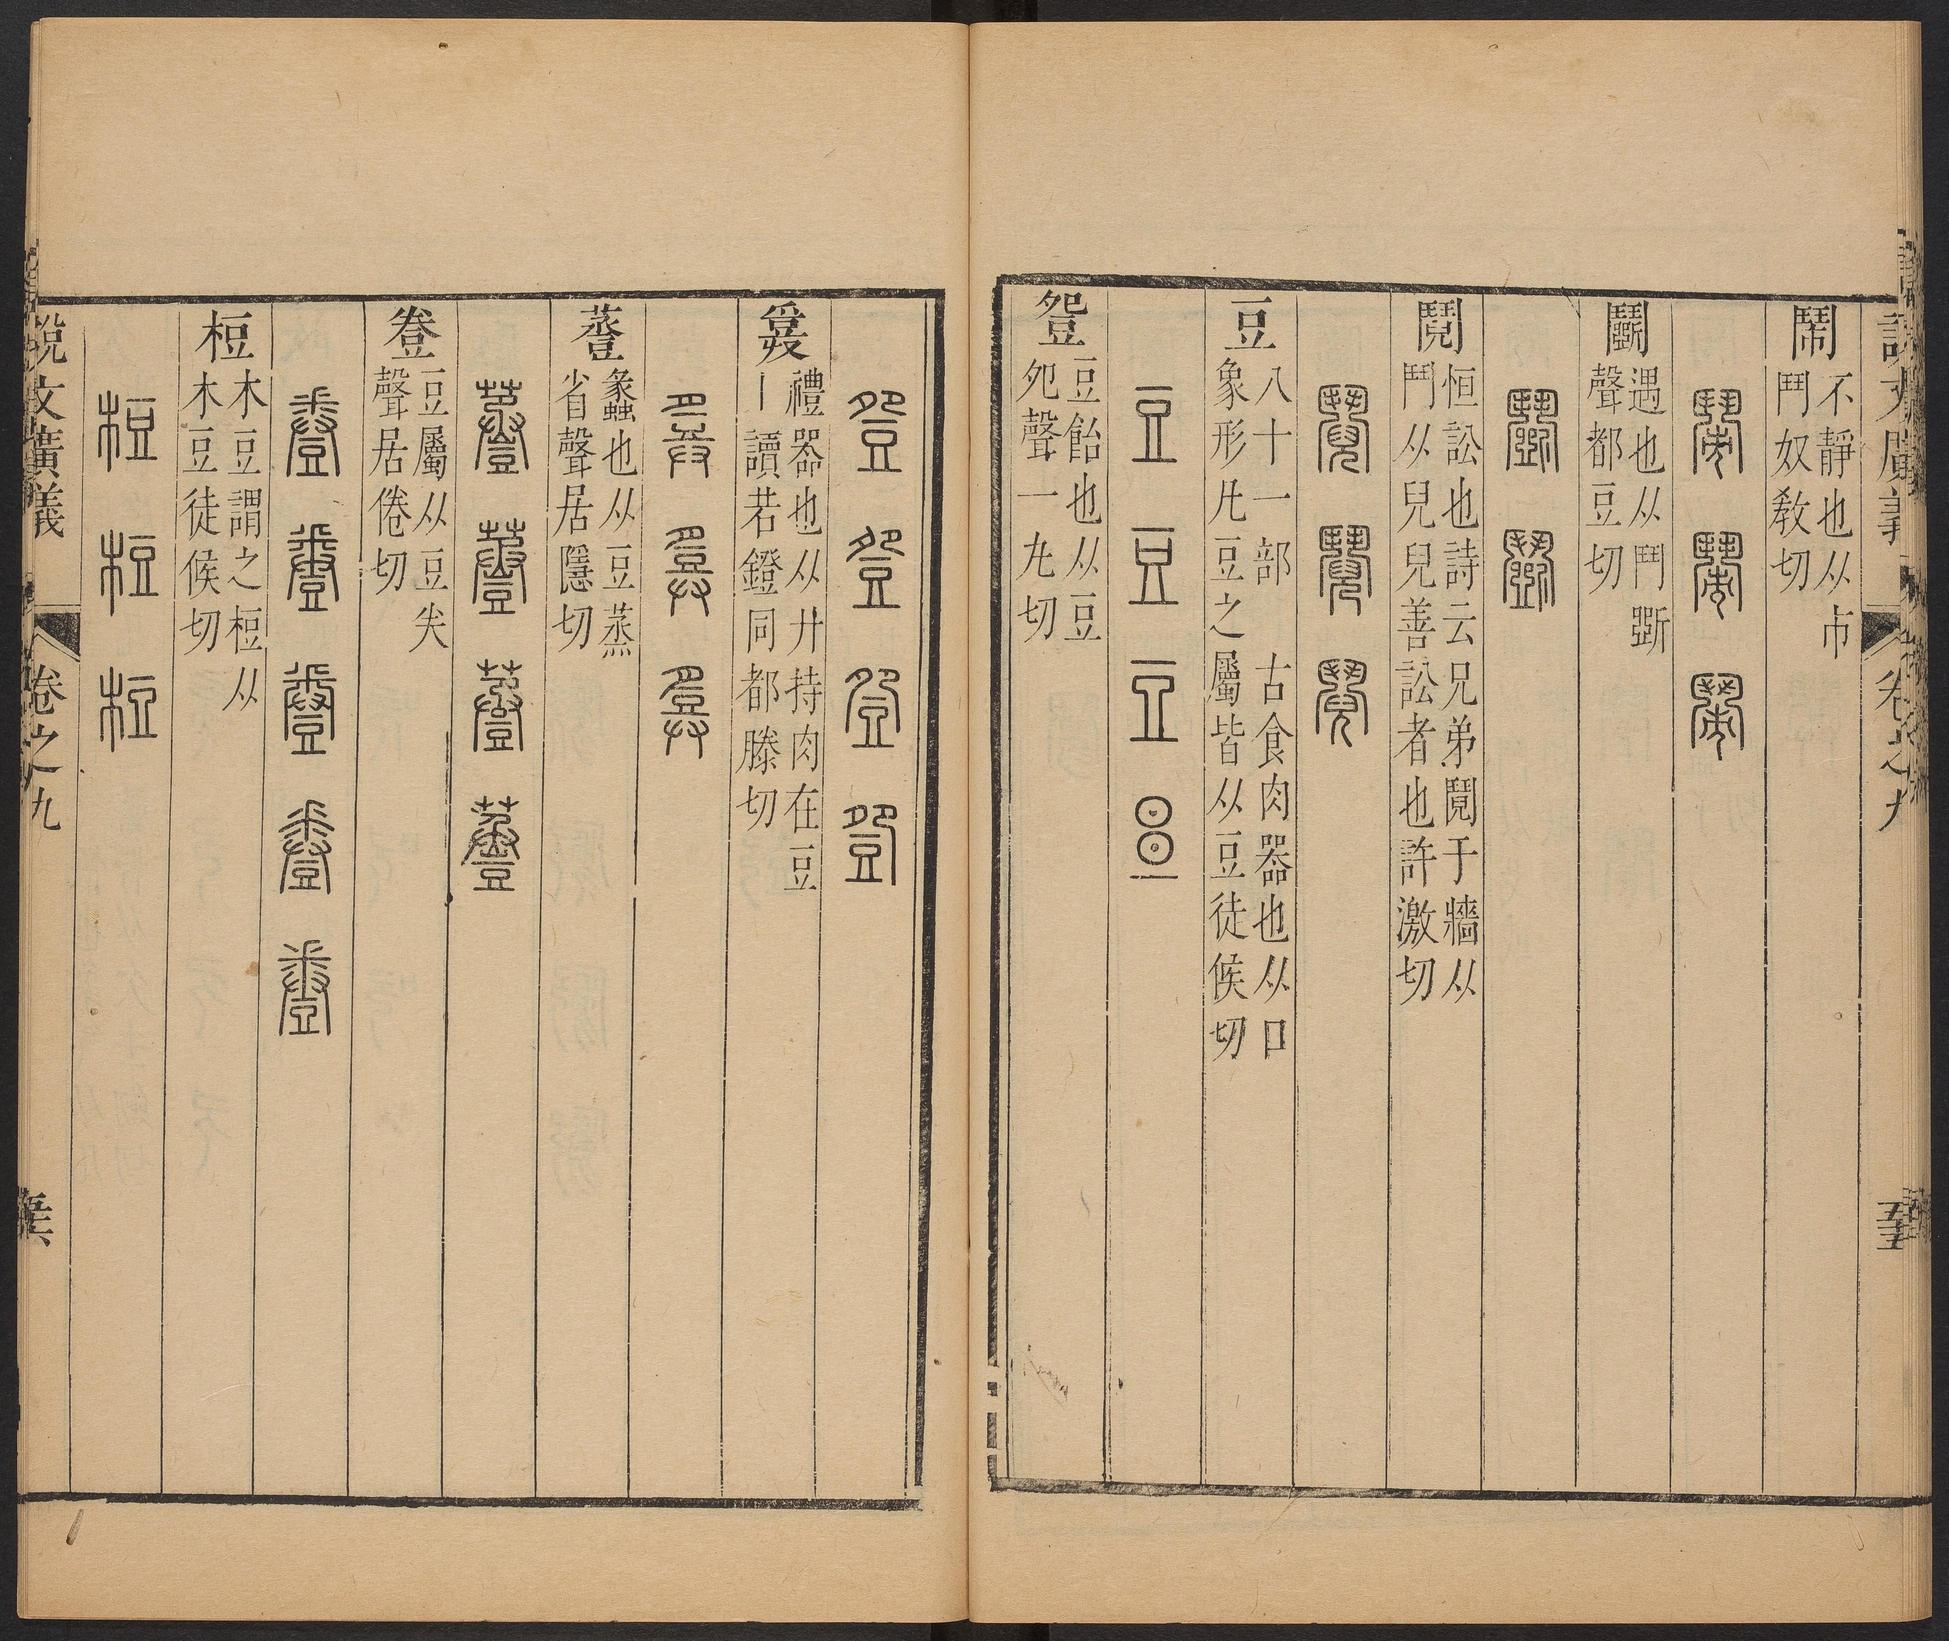 說文廣義
卷之九
鬧
不靜也从市
鬥奴敎切
鬭
遇也从鬥斲
聲都豆切
鬩
恒訟也詩云兄弟鬩于牆从
鬥从兒兒善訟者也許激切
豆
八十一部 古食肉器也从口
象形凡豆之屬皆从豆徒候切
豆 豆 豆
䝀
豆飴也从豆
夗聲一九切
䝀 䝀 䝀 䝀
禮器也从廾持肉在豆
丨讀若鐙同都滕切
蠡也从豆蒸
省聲居隱切
豆屬从豆
聲居倦切
梪
木豆謂之梪从
木豆徒候切
梪 梪 梪
說文廣義
卷之九